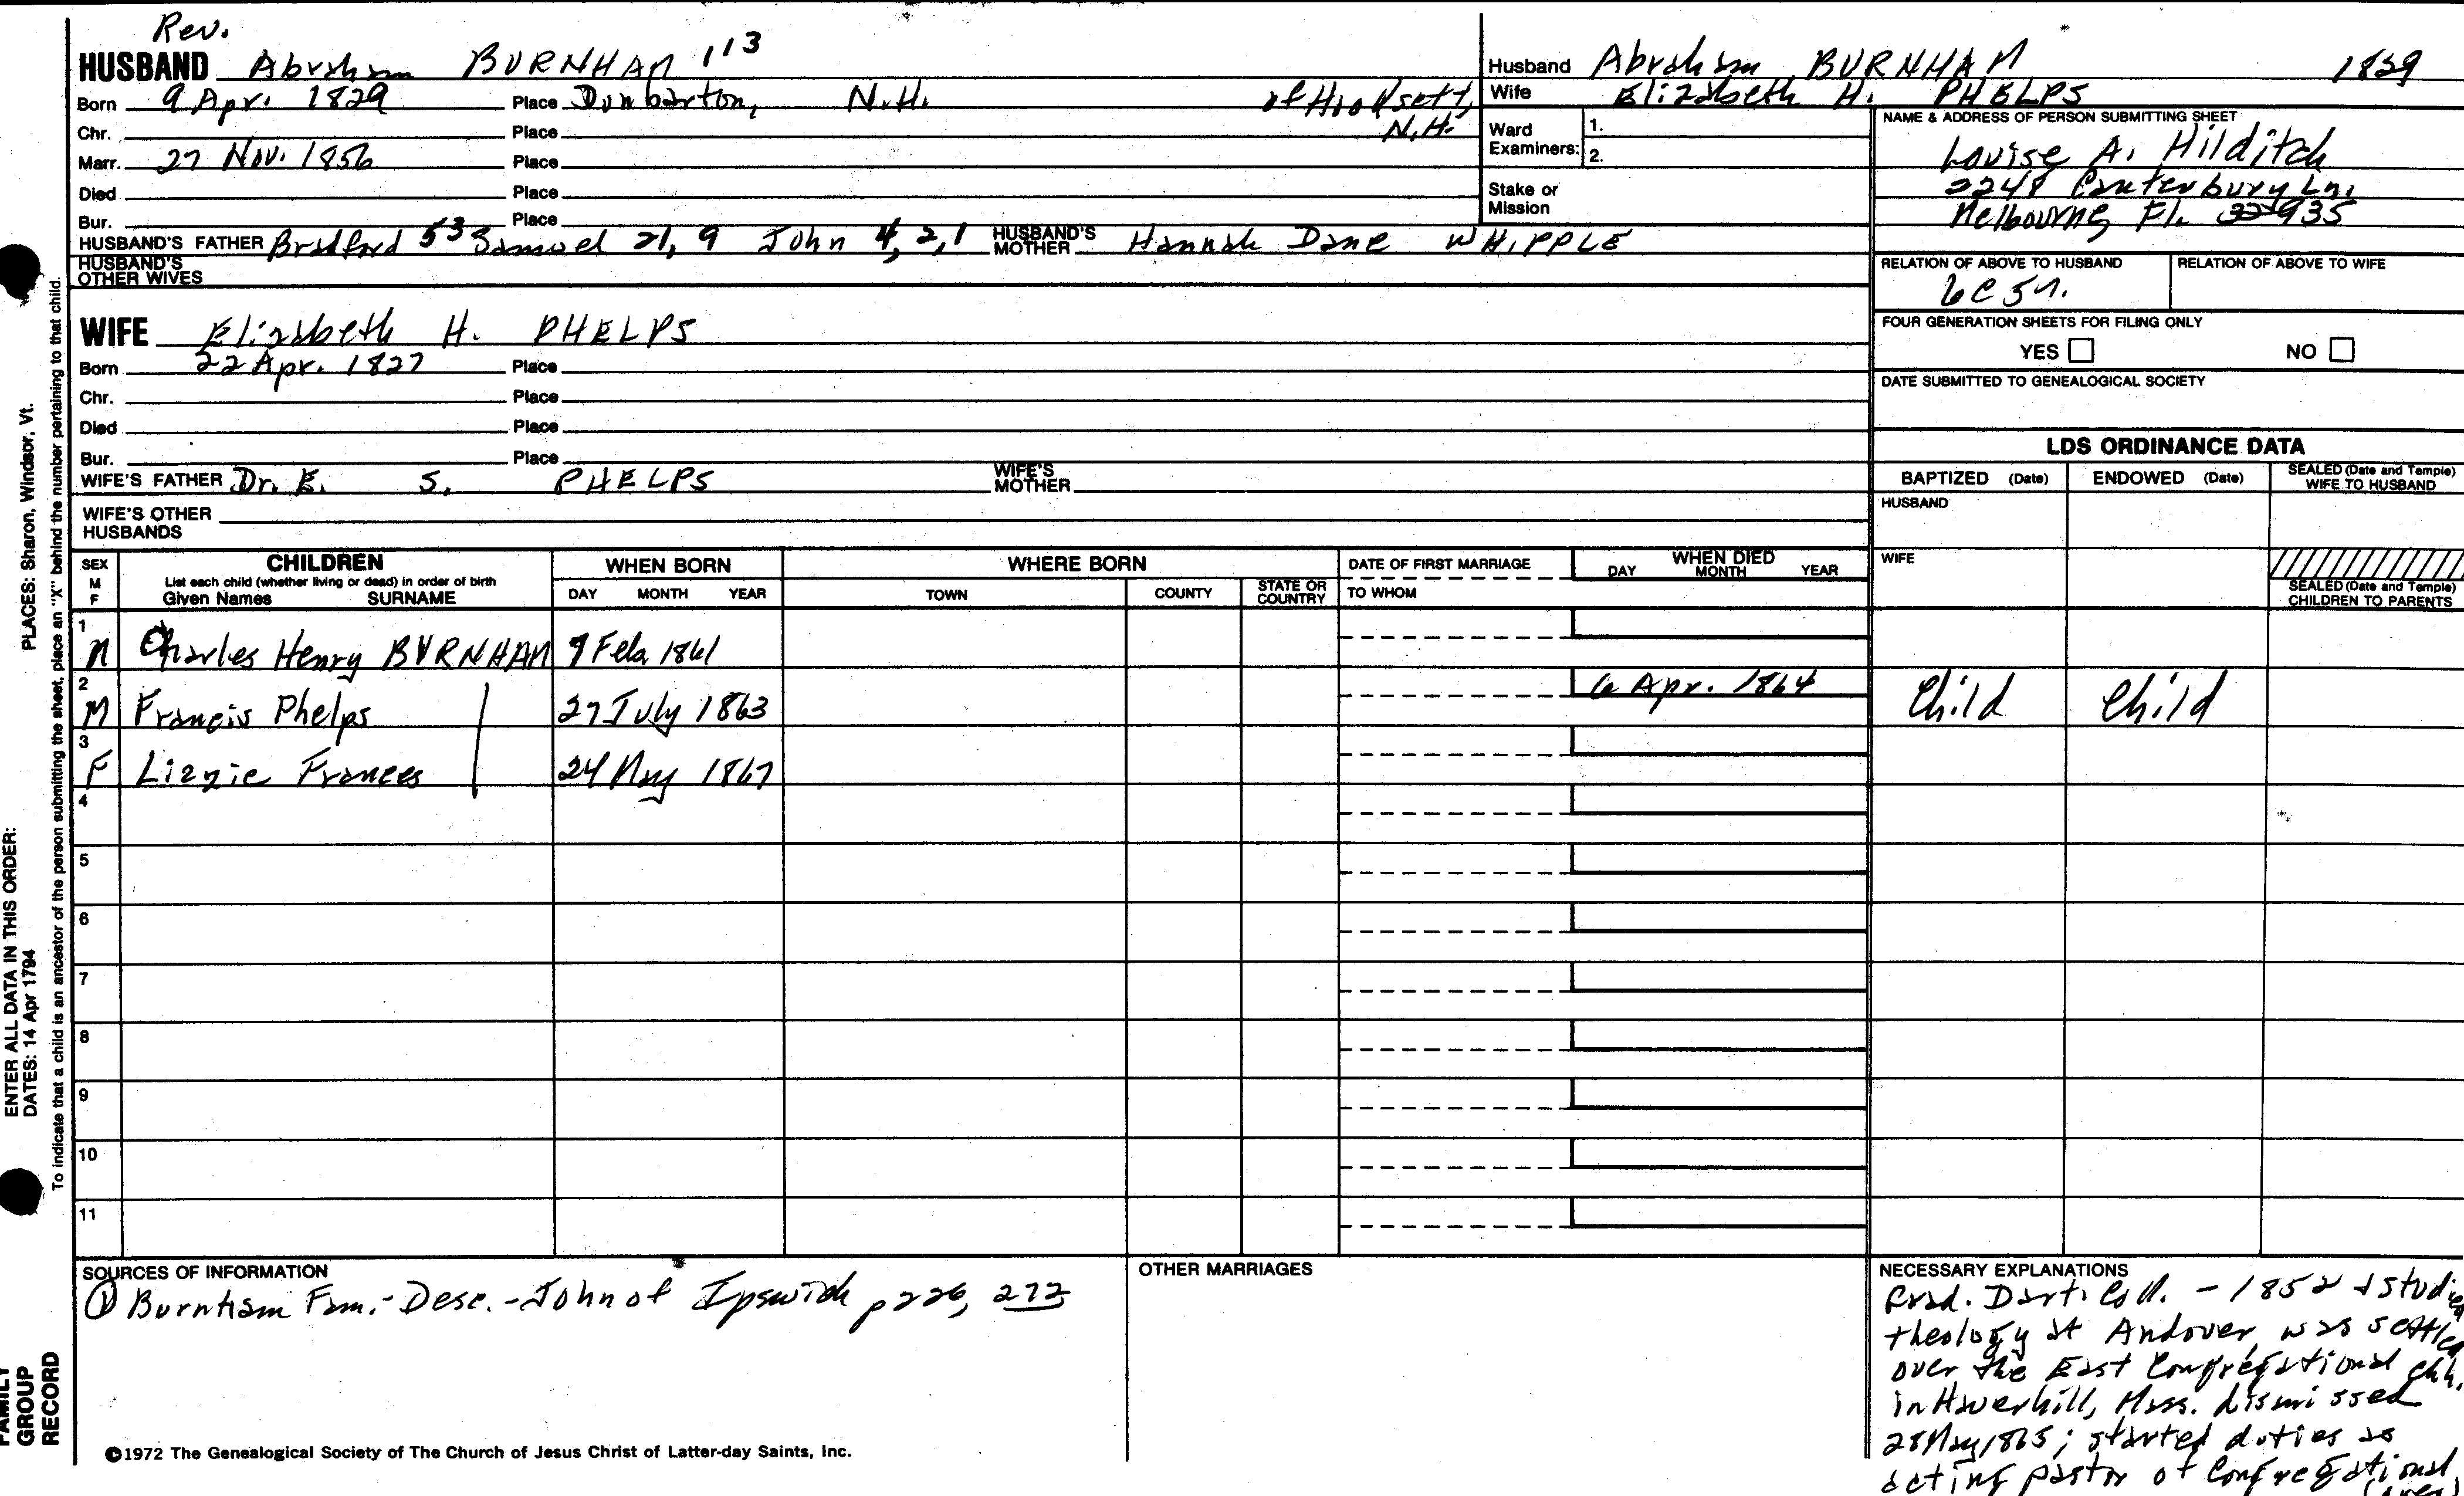 Rev.
HUSBAND Abraham BURNHAM 113
Born 9 Apr. 1829 Place Dunbarton, N.H. of Hooksett, N.H.
Chr. Place
Marr. 27 Nov. 1856 Place
Died Place
Bur. Place
HUSBAND'S FATHER Bradford 53 Samuel 21, 9 John 4, 2, 1 HUSBAND'S MOTHER Hannah Dane WHIPPLE
HUSBAND'S OTHER WIVES
WIFE Elizabeth H. PHELPS
Born 22 Apr. 1827 Place
Chr. Place
Died Place
Bur. Place
WIFE'S FATHER Dr. E. S. PHELPS WIFE'S MOTHER
WIFE'S OTHER HUSBANDS
Husband Abraham BURNHAM 1829
Wife Elizabeth H. PHELPS
Ward Examiners: 1.
2.
Stake or Mission
NAME & ADDRESS OF PERSON SUBMITTING SHEET
Louise A. Hilditch
2248 Canterbury Ln.
Melbourne, Fl. 32935
RELATION OF ABOVE TO HUSBAND RELATION OF ABOVE TO WIFE
6C5R.
FOUR GENERATION SHEETS FOR FILING ONLY
YES NO
DATE SUBMITTED TO GENEALOGICAL SOCIETY
LDS ORDINANCE DATA
BAPTIZED (Date) ENDOWED (Date) SEALED (Date and Temple) WIFE TO HUSBAND
HUSBAND
WIFE
SEALED (Date and Temple) CHILDREN TO PARENTS
SEX M F
CHILDREN
List each child (whether living or dead) in order of birth
Given Names SURNAME
WHEN BORN
DAY MONTH YEAR
WHERE BORN
TOWN COUNTY STATE OR COUNTRY
DATE OF FIRST MARRIAGE
TO WHOM
WHEN DIED
DAY MONTH YEAR
1 M Charles Henry BURNHAM 9 Feb 1861
2 M Francis Phelps 27 July 1863 6 Apr. 1864 Child Child
3 F Lizzie Frances 24 May 1867
4
5
6
7
8
9
10
11
SOURCES OF INFORMATION
① Burnham Fam. - Desc. - John of Ipswich p 226, 272
OTHER MARRIAGES
NECESSARY EXPLANATIONS
Grad. Dart. Coll. - 1852 & studied
theology at Andover, was settled
over the East Congregational chh.
in Haverhill, Mass. dismissed
28 May 1865; started duties as
acting pastor of Congregational
(over)
©1972 The Genealogical Society of The Church of Jesus Christ of Latter-day Saints, Inc.
FAMILY
GROUP
RECORD
ENTER ALL DATA IN THIS ORDER:
DATES: 14 Apr 1794
PLACES: Sharon, Windsor, Vt.
To indicate that a child is an ancestor of the person submitting the sheet, place an "X" behind the number pertaining to that child.